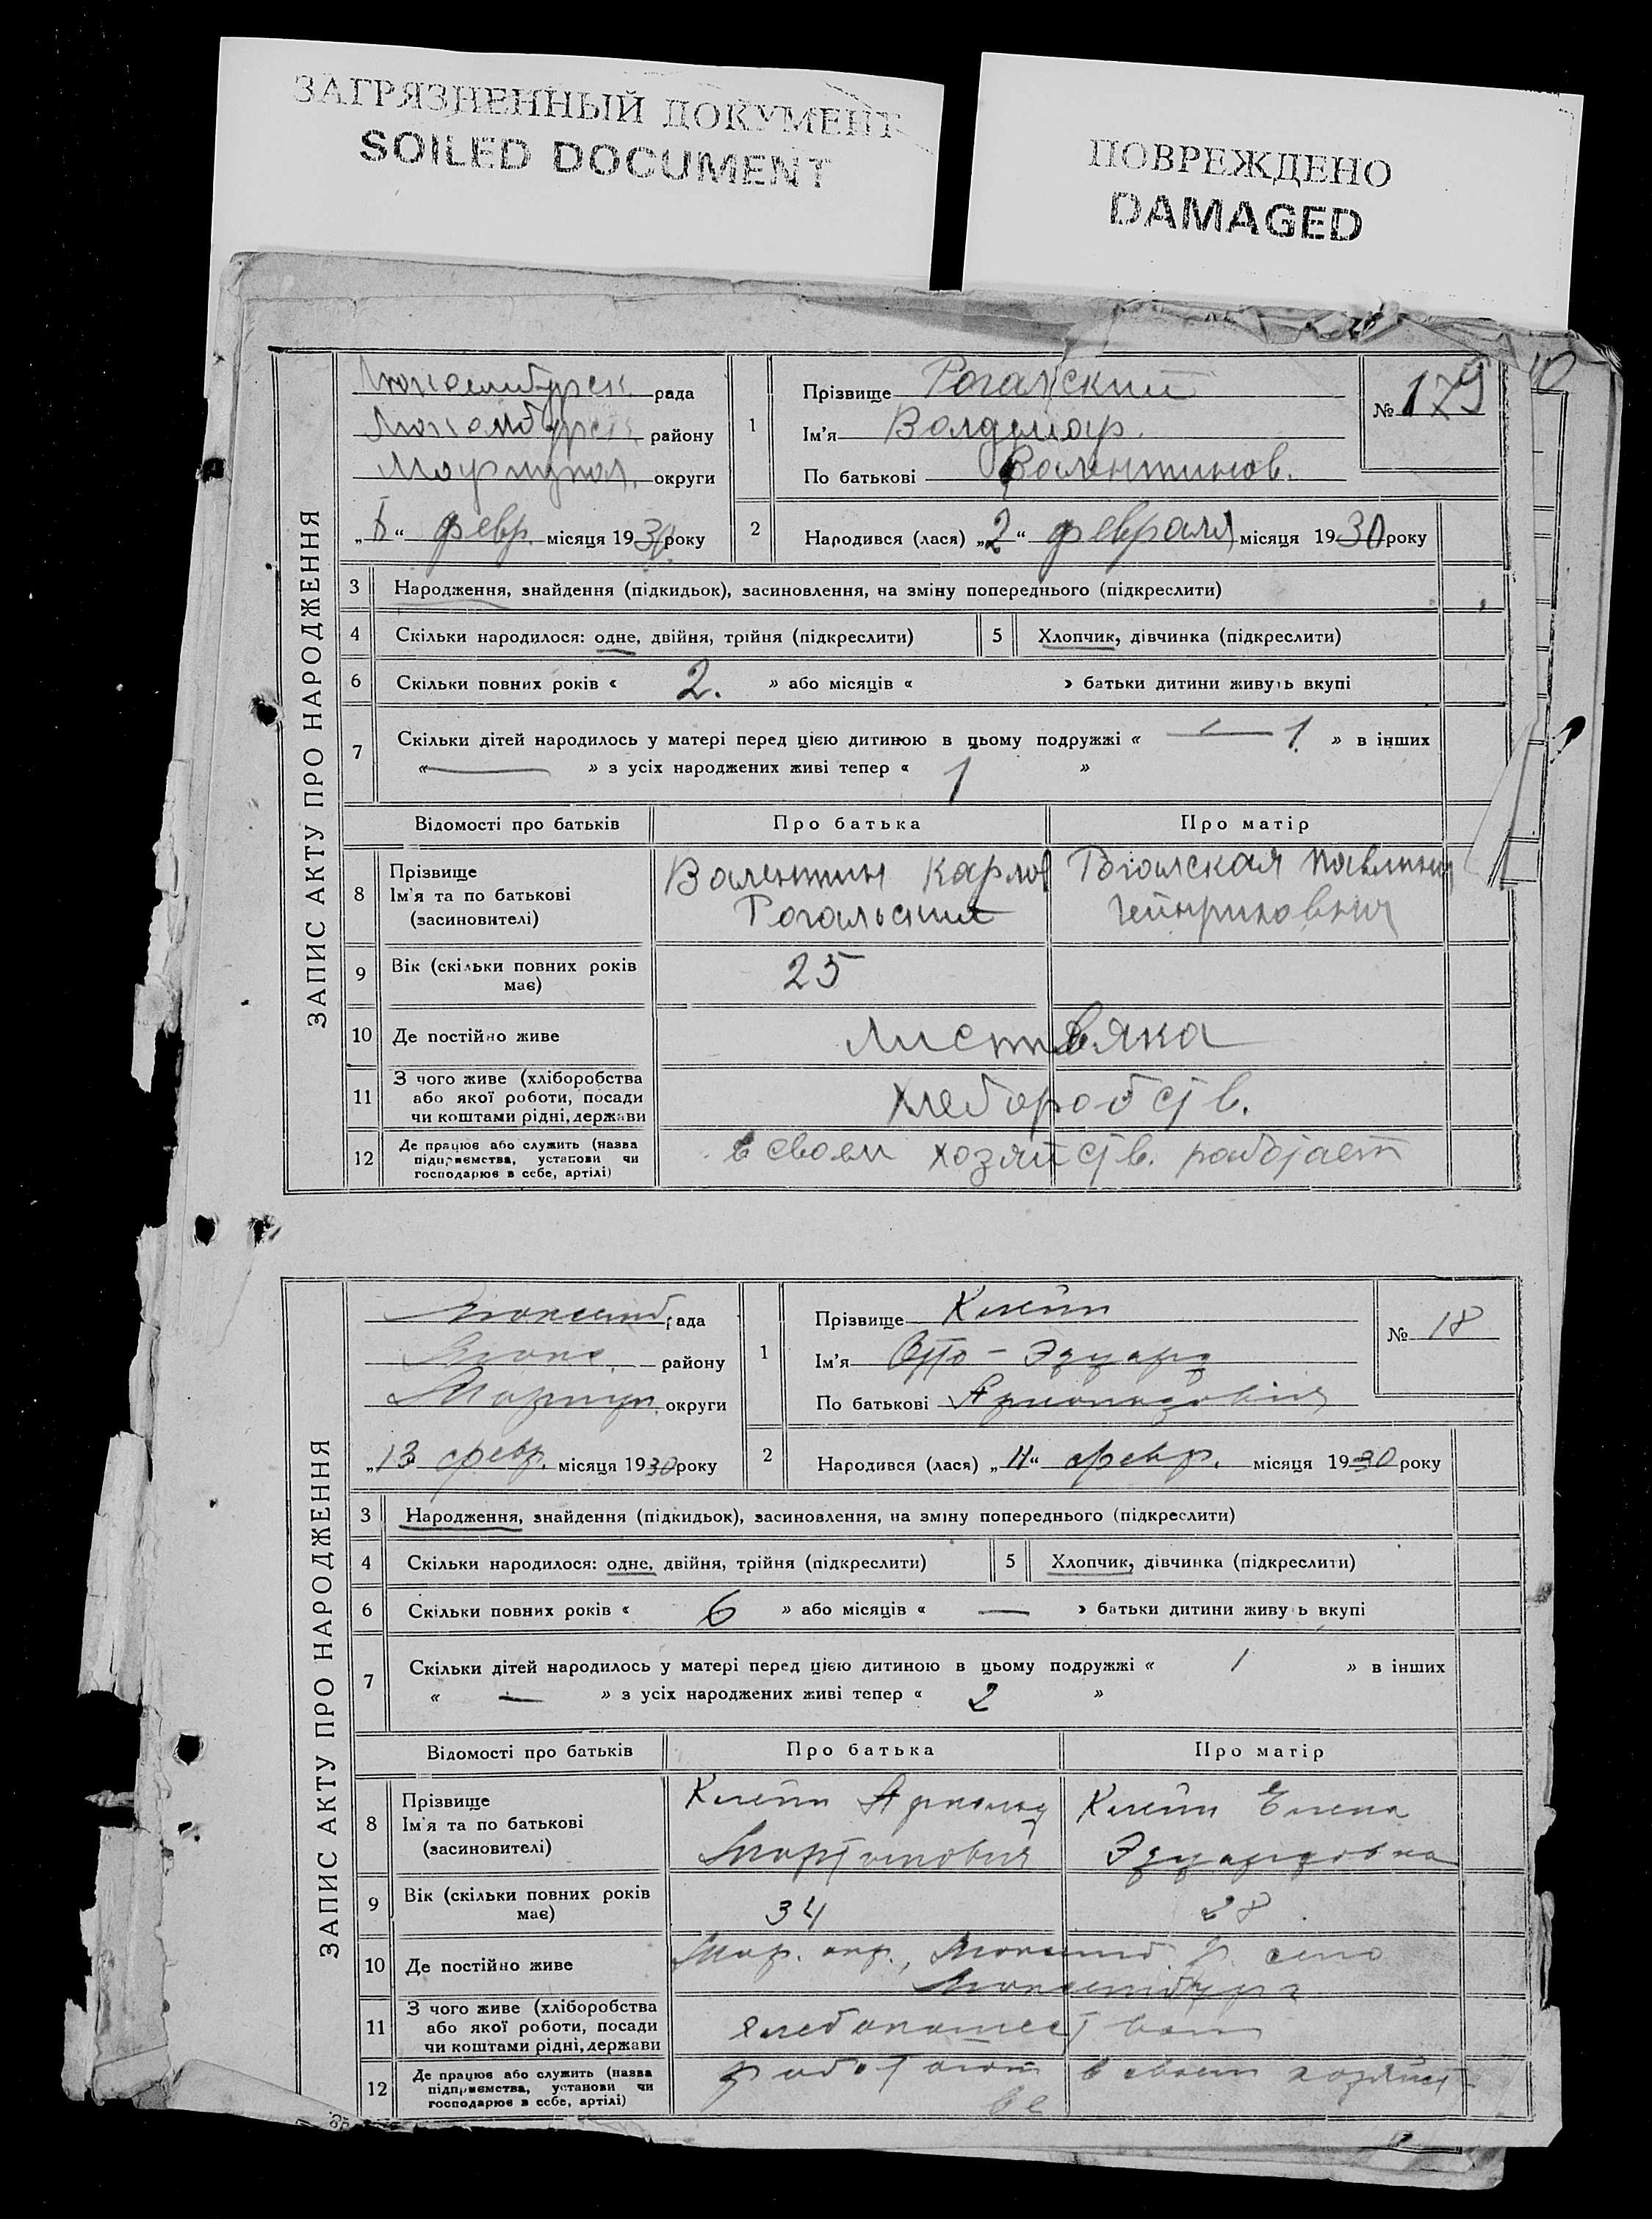 ЗАГРЯЗНЕННЫЙ ДОКУМЕНТ
SOILED DOCUMENT
ПОВРЕЖДЕНО
DAMAGED
ЗАПИС АКТУ ПРО НАРОДЖЕННЯ
Люксембурск рада
району
Мариупол. округи
„ “ февр. місяця 1930 року
1
Прізвище Рогальский
Ім'я Волдемар.
По батькові Валентинов.
№ 179
2
Народився (лася) „2“ февраля місяця 1930 року
3 Народження, знайдення (підкидьок), засиновлення, на зміну попереднього (підкреслити)
4 Скільки народилося: одне, двійня, трійня (підкреслити) 5 Хлопчик, дівчинка (підкреслити)
6 Скільки повних років « 2. » або місяців « » батьки дитини живуть вкупі
7 Скільки дітей народилось у матері перед цією дитиною в цьому подружжі « — 1. » в інших
« — » з усіх народжених живі тепер « 1 »
Відомості про батьків Про батька Про матір
8 Прізвище
Ім'я та по батькові
(засновителі)
Валентин Карлов
Рогальский
Рогалская Павлина
Гейнриховна
9 Вік (скільки повних років
має)
25
10 Де постійно живе Листвяка
11 З чого живе (хліборобства
або якої роботи, посади
чи коштами рідні, держави
хлеборобств.
12 Де працює або служить (назва
підприємства, установи чи
господарює в себе, артілі)
в своем хозяйств. работает
ЗАПИС АКТУ ПРО НАРОДЖЕННЯ
Люксемб рада
Люкс. району
Мариуп. округи
„13 февр. місяця 1930 року
1
Прізвище Клейн
Ім'я Отто - Эдуард
По батькові Арнольдович
№ 18
2
Народився (лася) „11“ февр. місяця 1930 року
3 Народження, знайдення (підкидьок), засиновлення, на зміну попереднього (підкреслити)
4 Скільки народилося: одне, двійня, трійня (підкреслити) 5 Хлопчик, дівчинка (підкреслити)
6 Скільки повних років « 6 » або місяців « — » батьки дитини живуть вкупі
7 Скільки дітей народилось у матері перед цією дитиною в цьому подружжі « 1 » в інших
« — » з усіх народжених живі тепер « 2 »
Відомості про батьків Про батька Про матір
8 Прізвище
Ім'я та по батькові
(засиновителі)
Клейн Арнольд
Мартинович
Клейн Елена
Эдуардовна
9 Вік (скільки повних років
має)
34 28
10 Де постійно живе
Мар. окр., Люксемб р. село
Люксембург
11 З чого живе (хліборобства
або якої роботи, посади
чи коштами рідні, держави
хлебопашеством
12 Де працює або служить (назва
підприємства, установи чи
господарює в себе, артілі)
работают в своем хозяйст
ве